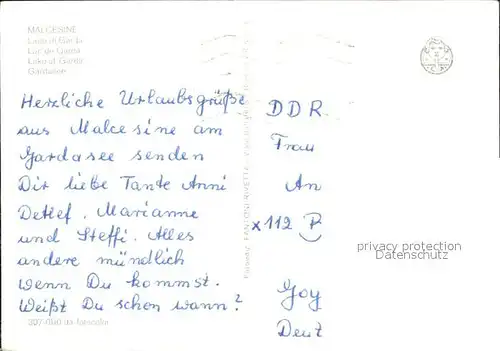 MALCESINE
Lago di Garda
Lac de Garda
Lake of Garda
Gardasee
Herzliche Urlaubsgrüße
aus Malcesine am
Gardasee senden
Dir liebe Tante Anni
Detlef, Marianne
und Steffi. Alles
andere mündlich
wenn Du kommst.
Weißt Du schon wann?
DDR
Frau
An
x 112 P
Goy
Deut
privacy protection
Datenschutz